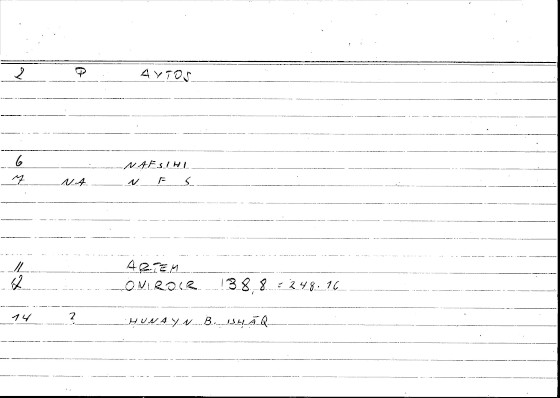 2 φ AYTOS
6 NAFSIHI
7 NA N F S
11 ARTEM
12 ONIROCR 138,8 = 248.16
14 ? HUNAYN B. ISHĀQ